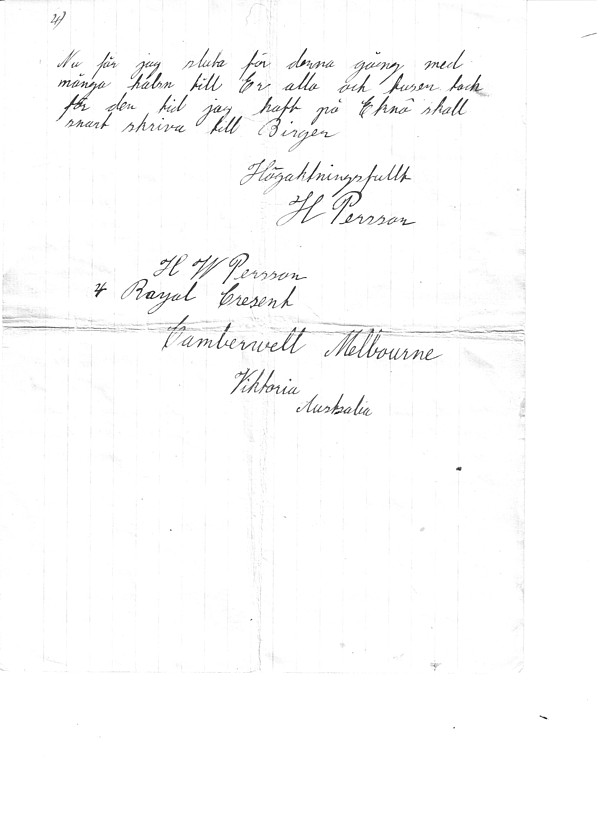 4)
Nu får jag sluta för denna gång med
många hälsn till Er alla och tusen tack
för den tid jag haft på Eknö skall
snart skriva till Birger
Högaktningsfullt
H Persson
H W Persson
4 Royal Cresent
Camberwell Melbourne
Viktoria
Australia